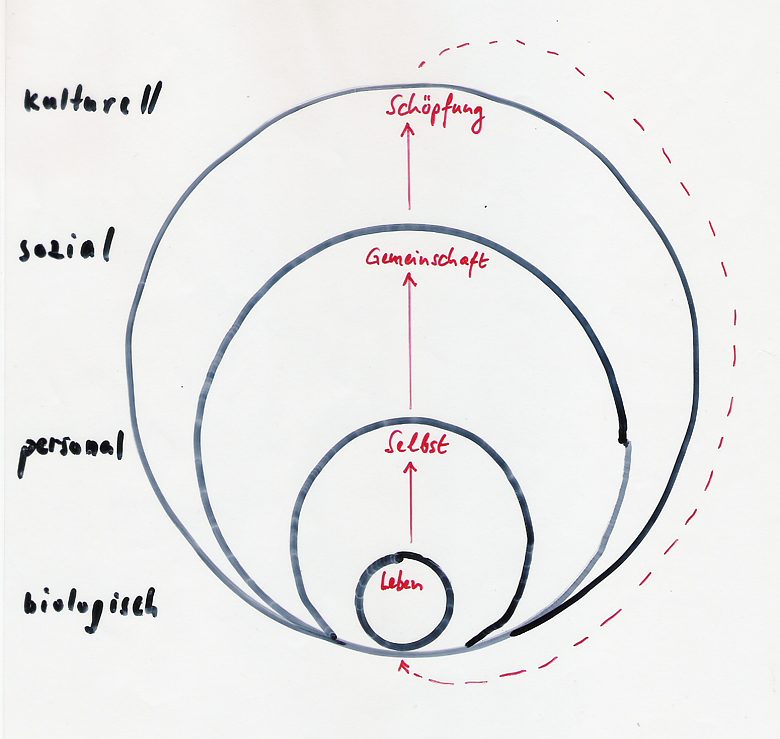 kulturell
Schöpfung
sozial
Gemeinschaft
personal
Selbst
biologisch
Leben